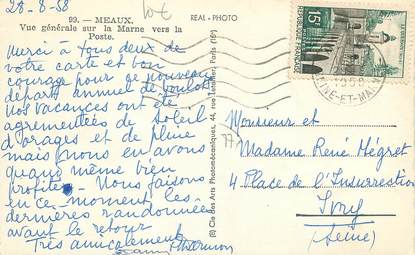 28-8-58
10€
99. - MEAUX.
Vue générale sur la Marne vers la
Poste.
REAL - PHOTO
Merci à tous deux de
votre carte et bon
courage pour ce nouveau
départ annuel de boulot.
Nos vacances ont été
agrémentées de soleil
d'orages et de pluie
mais nous en avons
quand même bien
profité. Nous faisons
en ce moment les
dernières randonnées
avant le retour
Très amicalement
(B) Cie des Arts Photomécaniques, 44, rue Letellier, Paris (15e)
15F
RÉPUBLIQUE FRANÇAISE
1958
NE-ET-MA
77
Monsieur et
Madame René Mégret
4 Place de l'Insurrection
Ivry
(Seine)